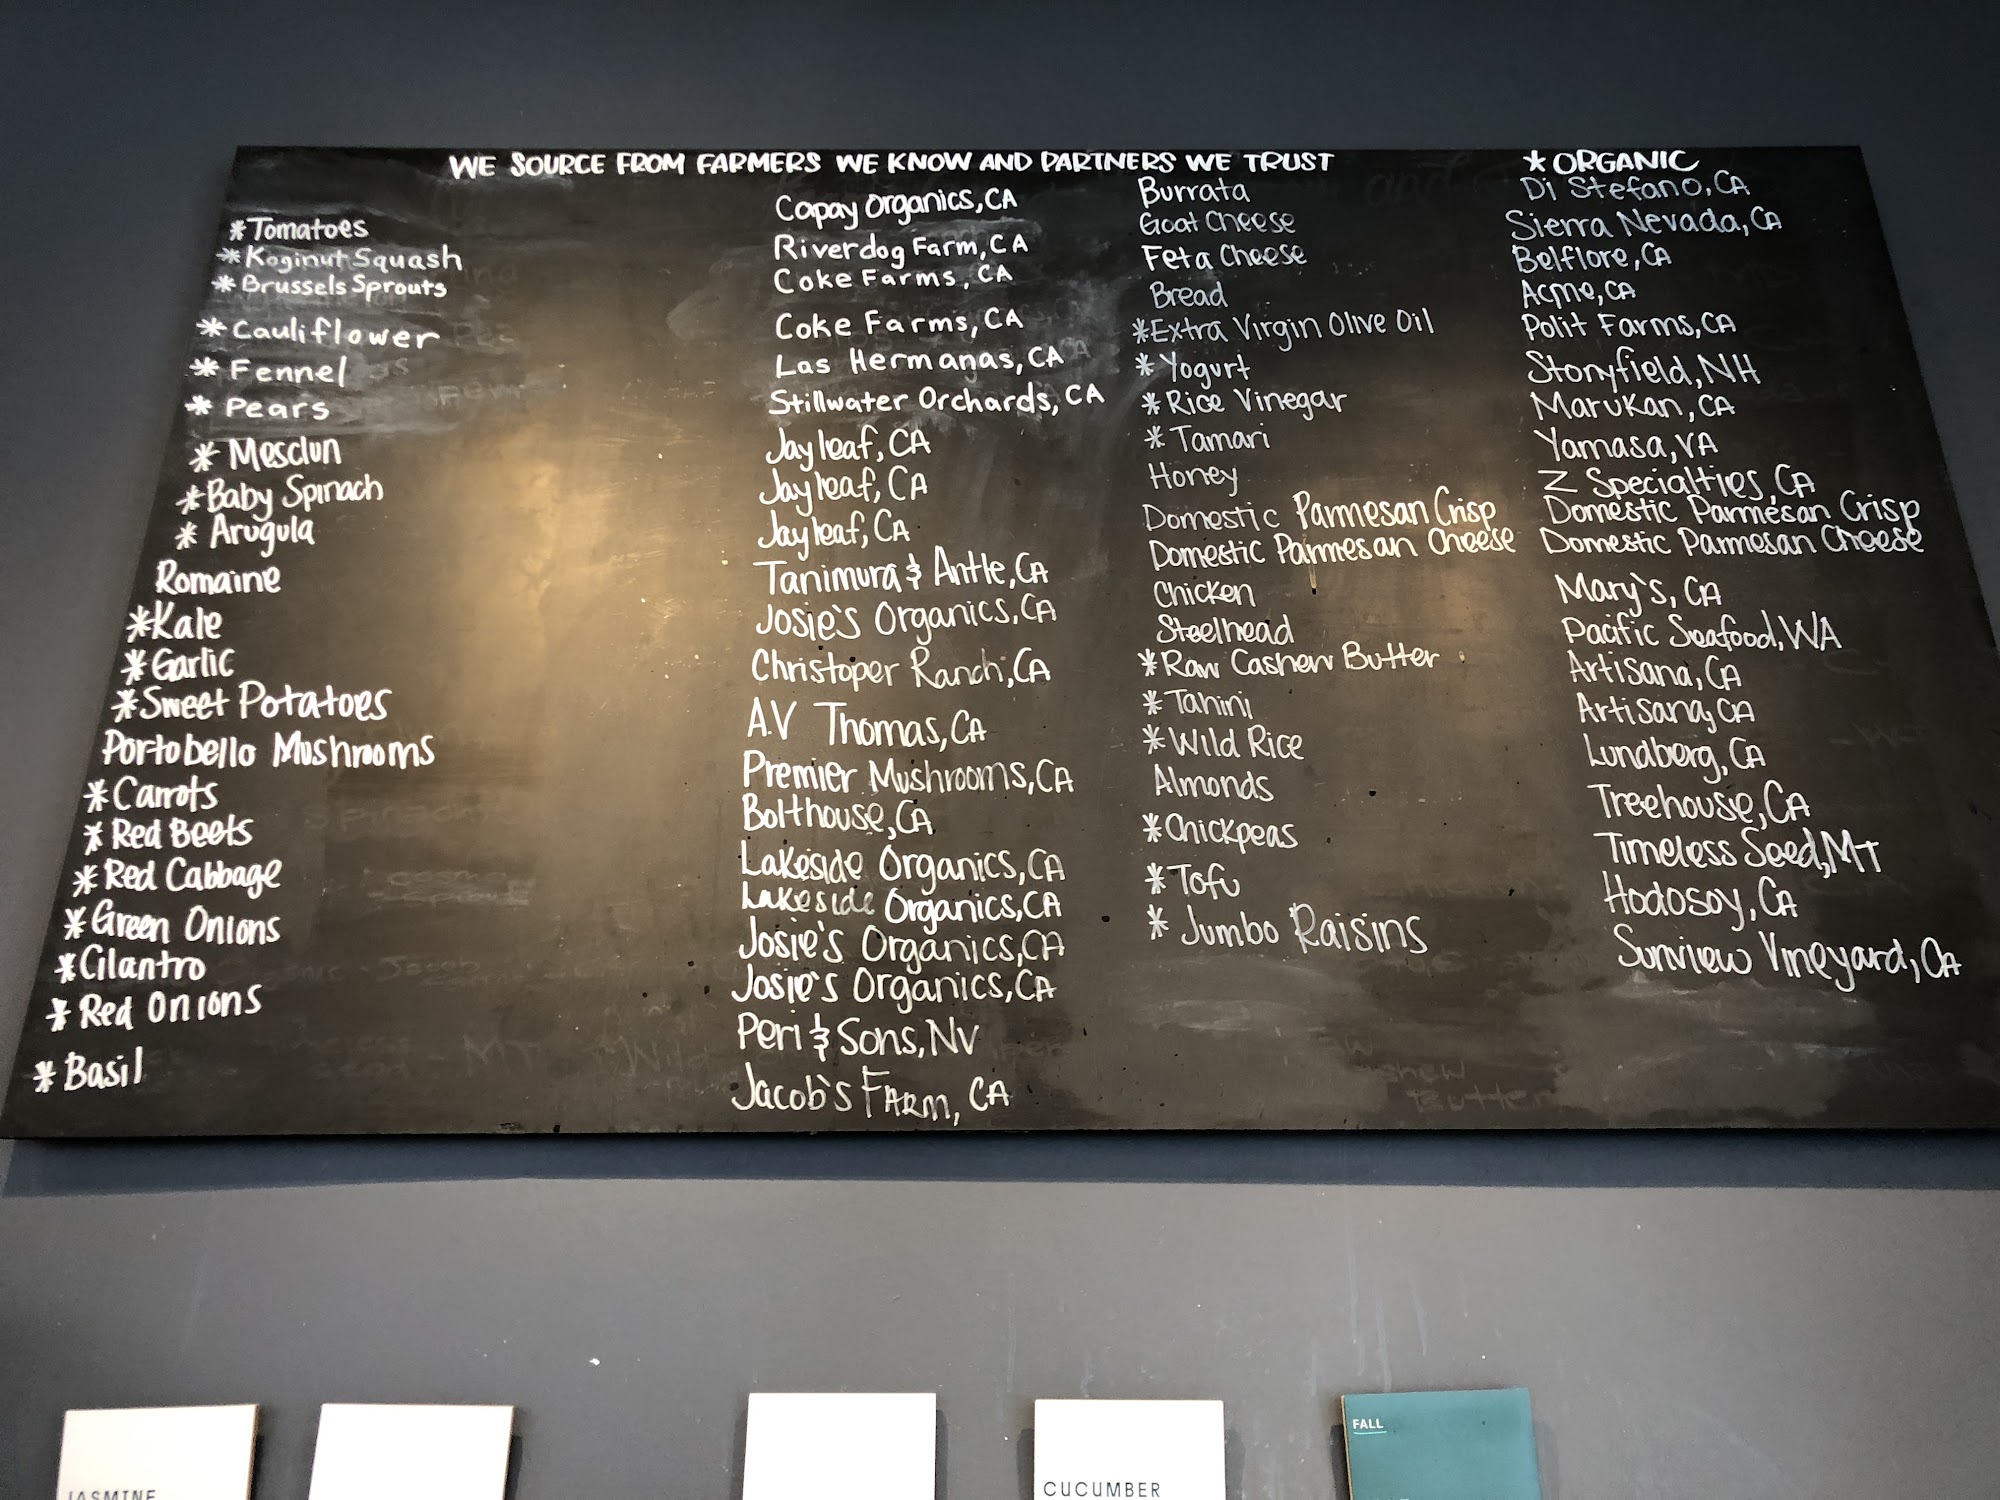 WE SOURCE FROM FARMERS WE KNOW AND PARTNERS WE TRUST
* ORGANIC
*Tomatoes
*Koginut Squash
*Brussels Sprouts
*Cauliflower
*Fennel
*Pears
*Mesclun
*Baby Spinach
*Arugula
Romaine
*Kale
*Garlic
*Sweet Potatoes
Portobello Mushrooms
*Carrots
*Red Beets
*Red Cabbage
*Green Onions
*Cilantro
*Red Onions
*Basil
Capay Organics, CA
Riverdog Farm, CA
Coke Farms, CA
Coke Farms, CA
Las Hermanas, CA
Stillwater Orchards, CA
Jayleaf, CA
Jayleaf, CA
Jayleaf, CA
Tanimura & Antle, CA
Josie's Organics, CA
Christoper Ranch, CA
A.V Thomas, CA
Premier Mushrooms, CA
Bolthouse, CA
Lakeside Organics, CA
Lakeside Organics, CA
Josie's Organics, CA
Josie's Organics, CA
Peri & Sons, NV
Jacob's Farm, CA
Burrata
Goat Cheese
Feta Cheese
Bread
*Extra Virgin Olive Oil
*Yogurt
*Rice Vinegar
*Tamari
Honey
Domestic Parmesan Crisp
Domestic Parmesan Cheese
Chicken
Steelhead
*Raw Cashew Butter
*Tahini
*Wild Rice
Almonds
*Chickpeas
*Tofu
*Jumbo Raisins
Di Stefano, CA
Sierra Nevada, CA
Belfiore, CA
Acme, CA
Polit Farms, CA
Stonyfield, NH
Marukan, CA
Yamasa, VA
Z Specialties, CA
Domestic Parmesan Crisp
Domestic Parmesan Cheese
Mary's, CA
Pacific Seafood, WA
Artisana, CA
Artisana, CA
Lundberg, CA
Treehouse, CA
Timeless Seed, MT
Hodosoy, CA
Sunview Vineyard, CA
JASMINE
CUCUMBER
FALL